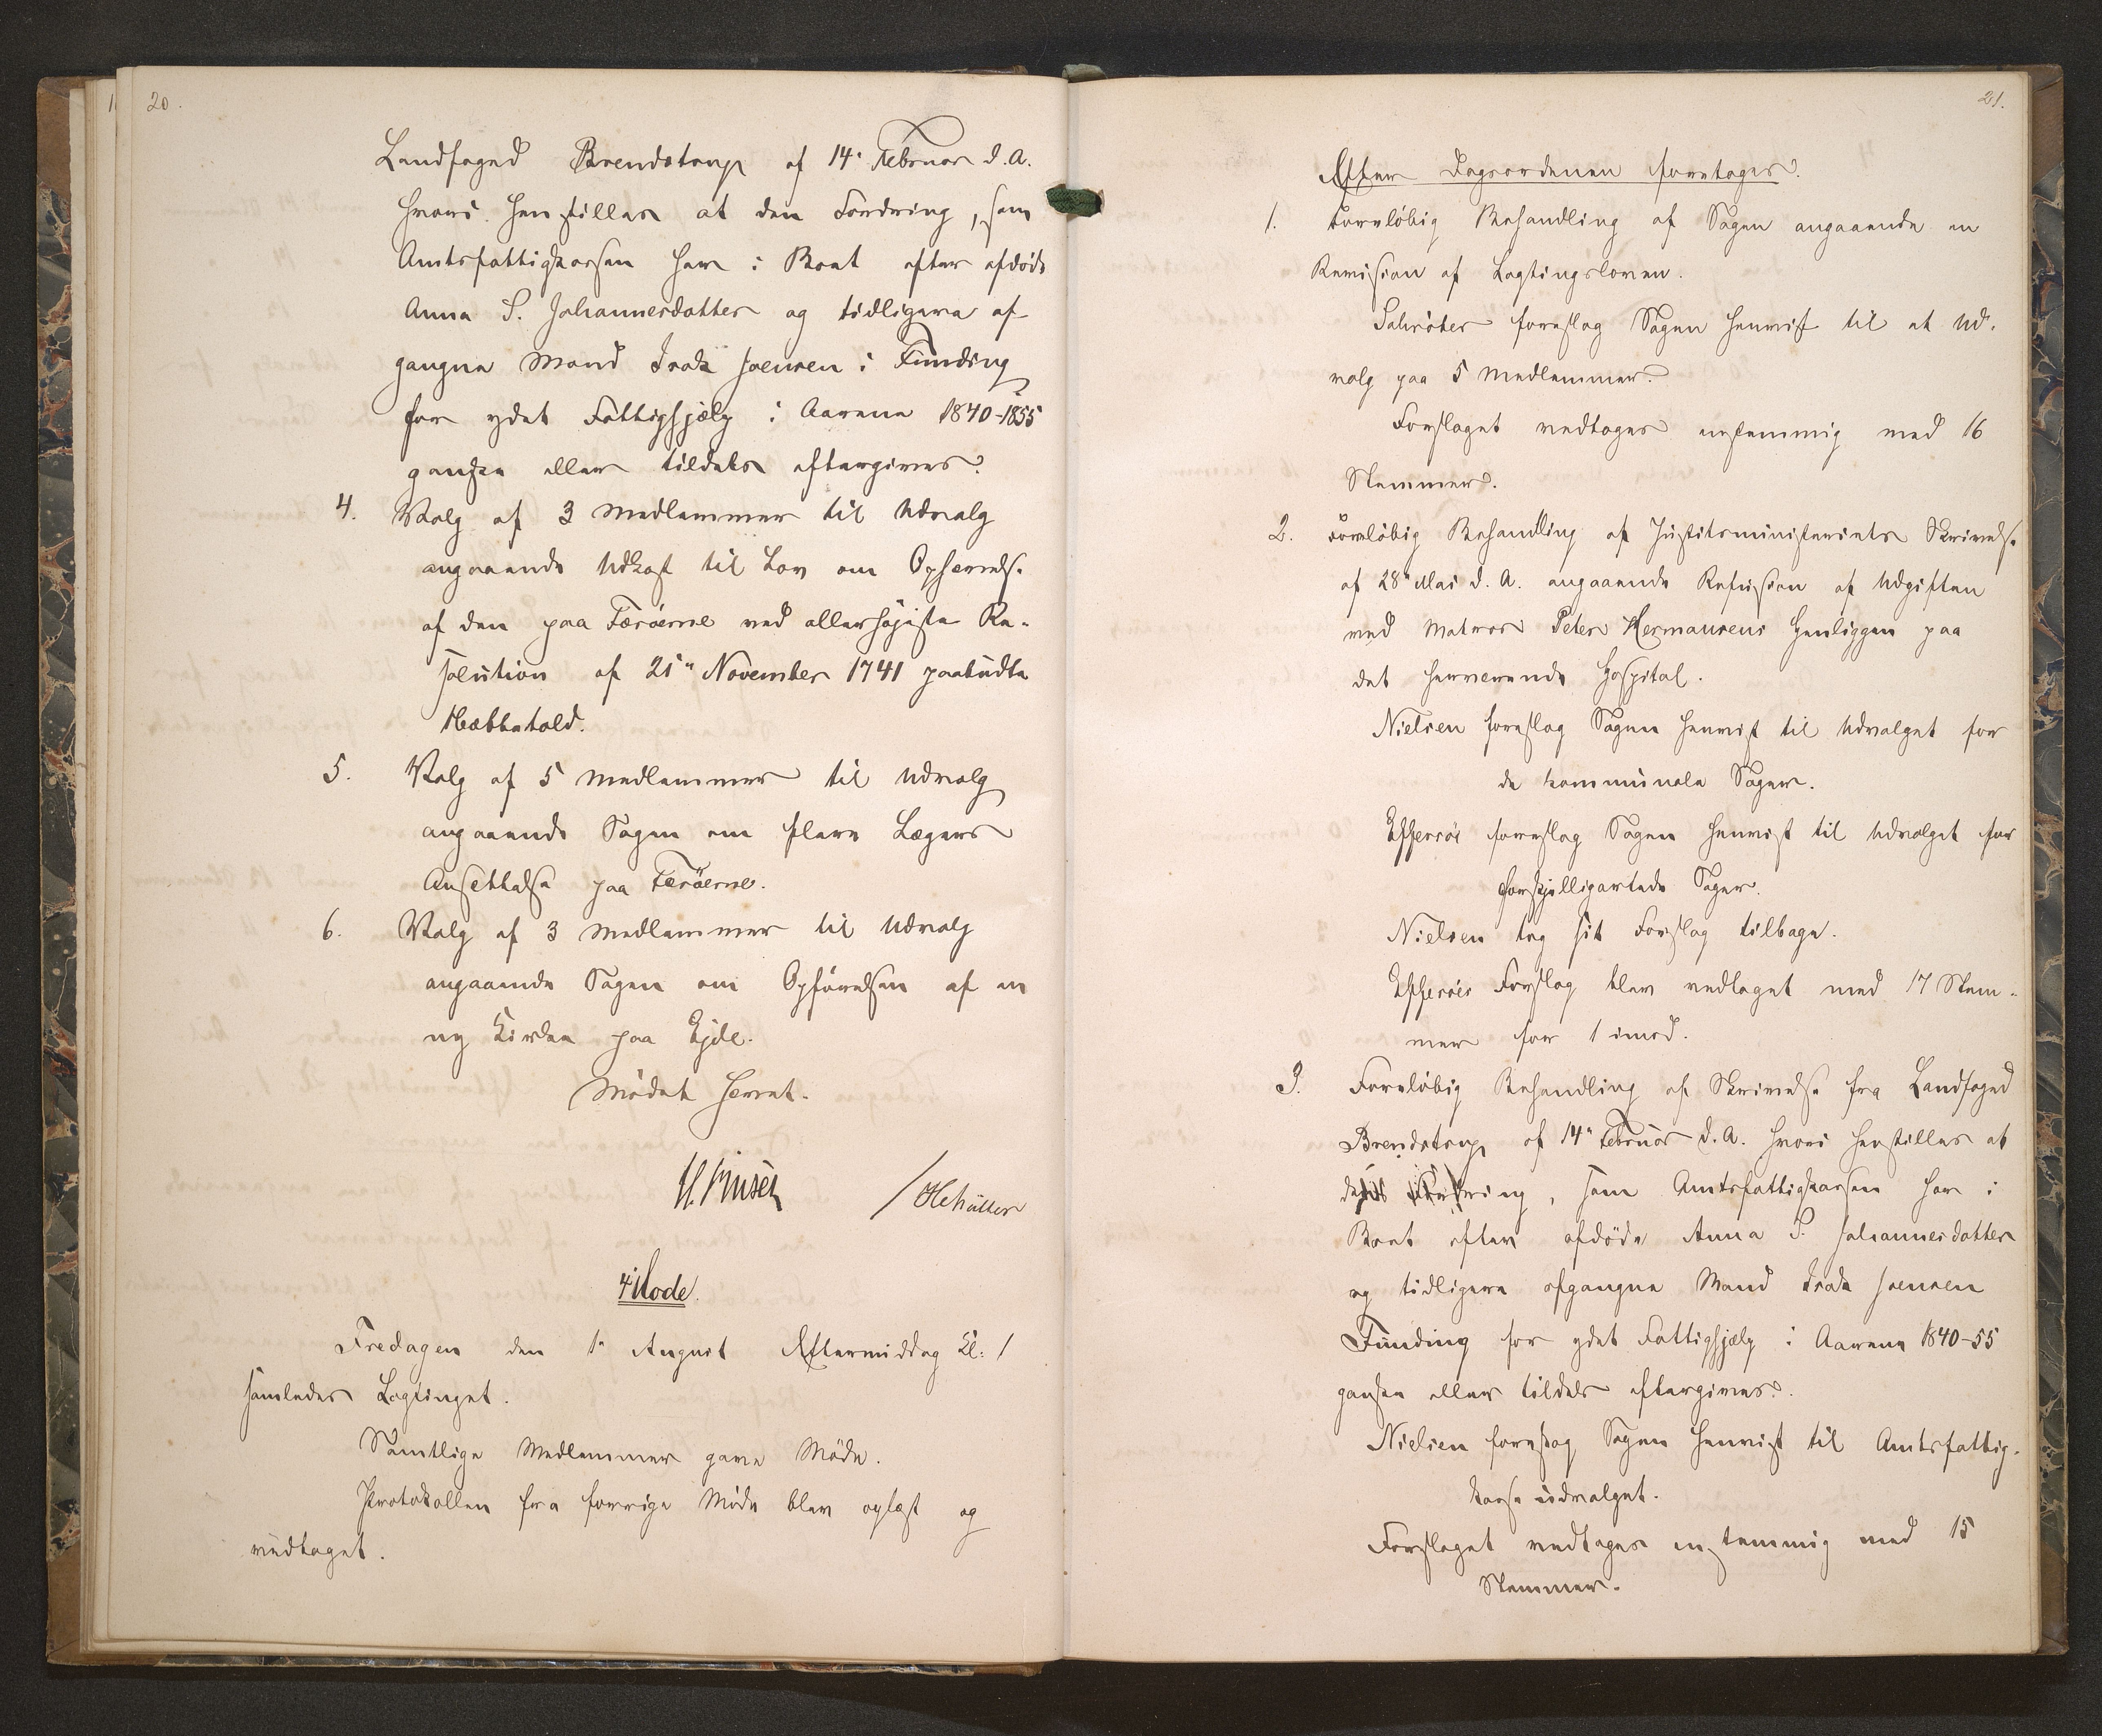 20.
Landfoged Brendstrup af 14. Februar d. A.
hvori henstilles at den Fordring, som
Amtsfattigkassen har i Boet efter afdøde
Anna S. Johannesdatter og tidligere af-
gangne Mand Isak Joensen i Funding
for ydet Fattighjælp i Aarene 1840-1855
ganske eller tildels eftergives.
4. Valg af 3 Medlemmer til Udvalg
angaaende Udkast til Lov om Ophævelse
af den paa Færøerne ved allerhøjeste Re-
solution af 21" November 1741 paabudte
Næbbetold.
5. Valg af 5 Medlemmer til Udvalg
angaaende Sagen om flere Lægers
Ansettelse paa Færøerne.
6. Valg af 3 Medlemmer til Udvalg
angaaende Sagen om Opførelsen af en
ny Kirke paa Ejde.
Mødet hævet.
4 Møde.
Fredagen den 1" August Eftermiddag Kl: 1
samledes Lagtinget.
Samtlige Medlemmer gave Møde.
Protokollen fra forrige Møde blev oplæst og
vedtaget.
21.
Efter Dagsordenen foretoges:
1. Foreløbig Behandling af Sagen angaaende en
Revision af Lagtingsloven.
Schrøter foreslog Sagen henvist til et Ud-
valg paa 5 Medlemmer.
Forslaget vedtoges enstemmig med 16
Stemmer.
2. Foreløbig Behandling af Justitsministeriets Skrivelse
af 28" Mai d. A. angaaende Refusion af Udgiften
ved Matros Peter Hermansens Henliggen paa
det herværende Hospital.
Nielsen foreslog Sagen henvist til Udvalget for
de kommunale Sager.
Effersøe foreslog Sagen henvist til Udvalget for
forskjelligartede Sager.
Nielsen tog sit Forslag tilbage.
Effersøes Forslag blev vedtaget med 17 Stem-
mer for 1 imod.
3. Foreløbig Behandling af Skrivelse fra Landfoged
Brendstrup af 14" Februar d. A. hvori henstilles at
den Fordring, som Amtsfattigkassen har i
Boet efter afdøde Anna S. Johannesdatter
og tidligere afgangne Mand Isak Joensen
Funding for ydet Fattighjælp i Aarene 1840-55
ganske eller tildels eftergives.
Nielsen foreslog Sagen henvist til Amtsfattig-
kasseudvalget.
Forslaget vedtoges enstemmig med 15
Stemmer.